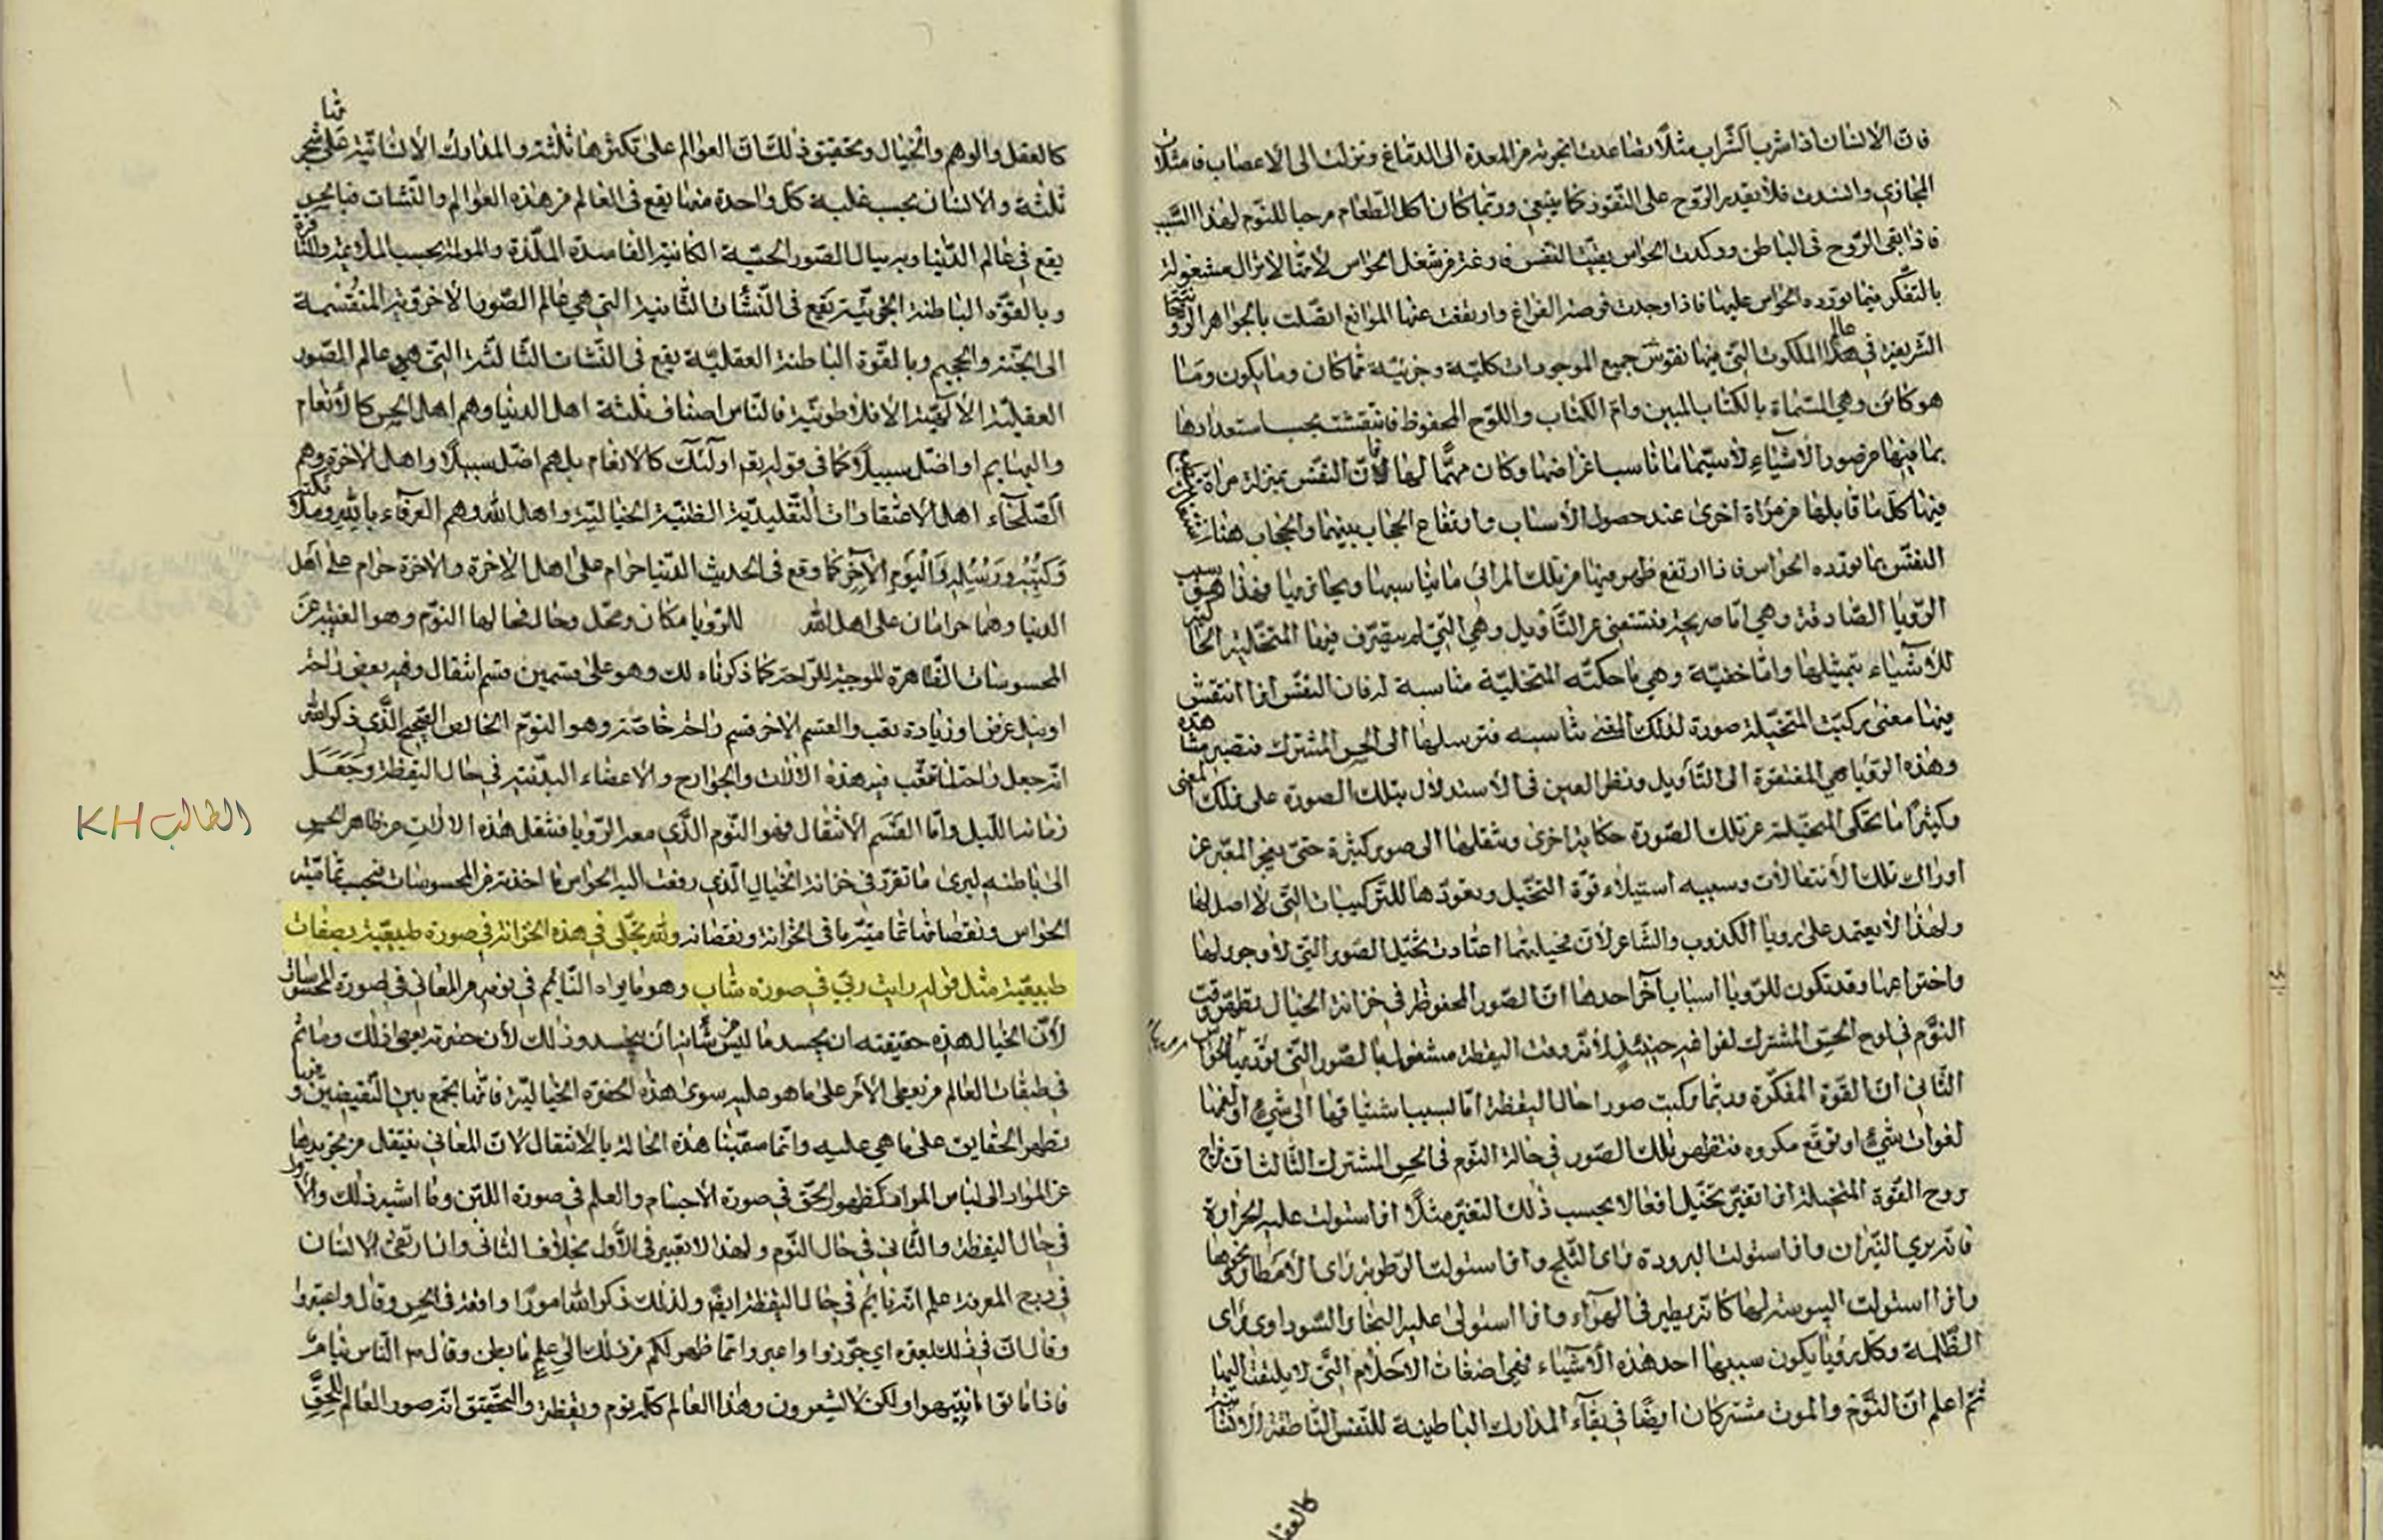 فان الانسان اذا شرب الشراب مثلا تصاعدت ابخرته من المعدة الى الدماغ ونزلت الى الاعصاب فامتلات
المجاري وانسدت فلا يقدر الروح على النفوذ كما ينبغي وربما كان اكل الطعام موجبا للنوم لهذا السبب
فاذا بقى الروح في الباطن وركدت الحواس بقيت النفس فارغة من شغل الحواس لانها لا تزال مشغولة
بالتفكر فيما تورده الحواس عليها فاذا وجدت فرصة الفراغ وارتفعت عنها الموانع اتصلت بالجواهر الروحانية
الشريفة في عالم الملكوت التي فيها نقوش جميع الموجودات كلية وجزئية مما كان وما يكون وما
هو كائن وهي المسماة بالكتاب المبين وام الكتاب واللوح المحفوظ فانتقشت بحسب استعدادها
بما فيها من صور الاشياء لا سيما ما ناسب اغراضها وكان مهما لها فان النفس بمنزلة مراة
فيها كل ما قابلها من مراة اخرى عند حصول الاسباب وارتفاع الحجاب بينهما والحجاب هنا
النفس بما تورده الحواس فاذا ارتفع ظهر فيها من تلك المرائي ما يناسبها ويحاذيها فهذا هو سبب
الرؤيا الصادقة وهي اما صريحة فتستغني عن التأويل وهي التي لم يتصرف فيها المتخيلة الحاكية
للاشياء بتمثيلها واما خفية وهي ما حكته المتخيلة مناسبة له فان النفس اذا انتقش
فيها معنى ركبت المتخيلة صورة لذلك المعنى تناسبه فترسلها الى الحس المشترك فتصير مشاهدة
وهذه الرؤيا هي المفتقرة الى التأويل ونظر المعبر في الاستدلال بتلك الصورة على ذلك المعنى
وكثيرا ما تحكي المتخيلة عن تلك الصورة حكاية اخرى وتنقلها الى صور كثيرة حتى يعجز المعبر عن
ادراك تلك الانتقالات وسببه استيلاء قوة التخيل وتعودها للتركيبات التي لا اصل لها
ولهذا لا يعتمد على رؤيا الكذوب والشاعر لان مخيلتهما اعتادت تخيل الصور التي لا وجود لها
واختراعها وقد تكون للرؤيا اسباب آخر احدها ان الصور المحفوظة في خزانة الخيال تظهر وقت
النوم في لوح الحس المشترك لفراغه حينئذ لانه وقت اليقظة مشغول بالصور التي تؤديها الحواس
الثاني ان القوة المفكرة ربما ركبت صورا حال اليقظة اما لسبب اشتياقها الى شيء او غمها
لفوات شيء او توقع مكروه فتظهر تلك الصور في حالة النوم في الحس المشترك الثالث ان مزاج
روح القوة المتخيلة اذا تغير تخيل افعالا بحسب ذلك التغير مثلا اذا استولت عليه الحرارة
فانه يرى النيران واذا استولت البرودة راى الثلج واذا استولت الرطوبة راى الامطار ونحوها
واذا استولت اليبوسة لها كانه يطير في الهواء واذا استولى عليه البخار السوداوي راى
الظلمة وكل رؤيا يكون سببها احد هذه الاشياء فهي اضغاث الاحلام التي لا يلتفت اليها
ثم اعلم ان النوم والموت مشتركان ايضا في بقاء المدارك الباطنية للنفس الناطقة الانسانية
كالعقل
كالعقل والوهم والخيال وتحقيق ذلك ان العوالم على تكثرها ثلثة والمدارك الانسانية على شجونها
ثلثة والانسان بحسب غلبة كل واحدة منها يقع في العالم من هذه العوالم والنشات فبالحس
يقع في عالم الدنيا وبه ينال الصور الحسية الكائنة الفاسدة الملذة والمولمة بحسب الملائمة والمنافرة
وبالقوة الباطنة الجزئية يقع في النشات الثانية التي هي عالم الصور الاخروية المنقسمة
الى الجنة والجحيم وبالقوة الباطنة العقلية يقع في النشات الثالثة التي هي عالم الصور
العقلية الالهية الافلاطونية فالناس اصناف ثلثة اهل الدنيا وهم اهل الحس كالانعام
والبهايم او اضل سبيلا كما في قوله تعالى اولئك كالانعام بل هم اضل سبيلا واهل الاخرة وهم
الصلحاء اهل الاعتقادات التقليدية الظنية الخيالية واهل الله وهم العرفاء بالله وملائكته
وكتبه ورسله واليوم الآخر كما وقع في الحديث الدنيا حرام على اهل الاخرة والاخرة حرام على اهل
الدنيا وهما حرامان على اهل الله للرؤيا مكان ومحل وحال فحالها النوم وهو الغيبة عن
المحسوسات الظاهرة الموجبة للراحة كما ذكرناه لك وهو على قسمين قسم انتقال وفيه بعض راحة
او نيل غرض او زيادة تعب والقسم الاخر قسم راحة خاصة وهو النوم الخالص الصحيح الذي ذكر الله
انه جعل راحة لما تعب فيه هذه الآلات والجوارح والاعضاء البدنية في حال اليقظة وجعل
زمانه الليل واما القسم الانتقال فهو النوم الذي معه الرؤيا فتنقل هذه الآلات من ظاهر الحس
الى باطنه ليرى ما تقرر في خزانة الخيال الذي رفعت اليه الحواس ما اخذته من المحسوسات فبحسب تمامية
الحواس ونقصانها تمامية ما في الخزانة ونقصانه ولله تجلى في هذه الخزانة في صورة طبيعية بصفات
طبيعية مثل قوله رايت ربي في صورة شاب وهو ما يراه النائم في نومه من المعاني في صورة المحسوسات
لان الخيال هذه حقيقته ان يجسد ما ليس من شانه ان يتجسد وذلك لان حضرته يعطي ذلك وما ثم
في طبقات العالم من يعطي الامر على ما هو عليه سوى هذه الحضرة الخيالية فانها تجمع بين النقيضين وفيها
تظهر الحقايق على ما هي عليه وانما سمينا هذه الحالة بالانتقال لان المعاني تنتقل من تجريدها
عن المواد الى لباس المواد كظهور الحق في صورة الاجسام والعلم في صورة اللبن وما اشبه ذلك والاول
في حال اليقظة والثاني في حال النوم ولهذا لا تعبير في الاول بخلاف الثاني واذا ارتقى الانسان
في درج المعرفة علم انه نائم في حال اليقظة ايضا ولذلك ذكر الله امورا واقعة في الحس وقال واعتبروا
وقال ان في ذلك لعبرة اي جوزوا واعبروا مما ظهر لكم من ذلك الى علم ما بطن وقال الناس نيام
فاذا ماتوا انتبهوا ولكن لا يشعرون وهذا العالم كله نوم ويقظة والتحقيق انه صور العالم للحق
KH الطالب